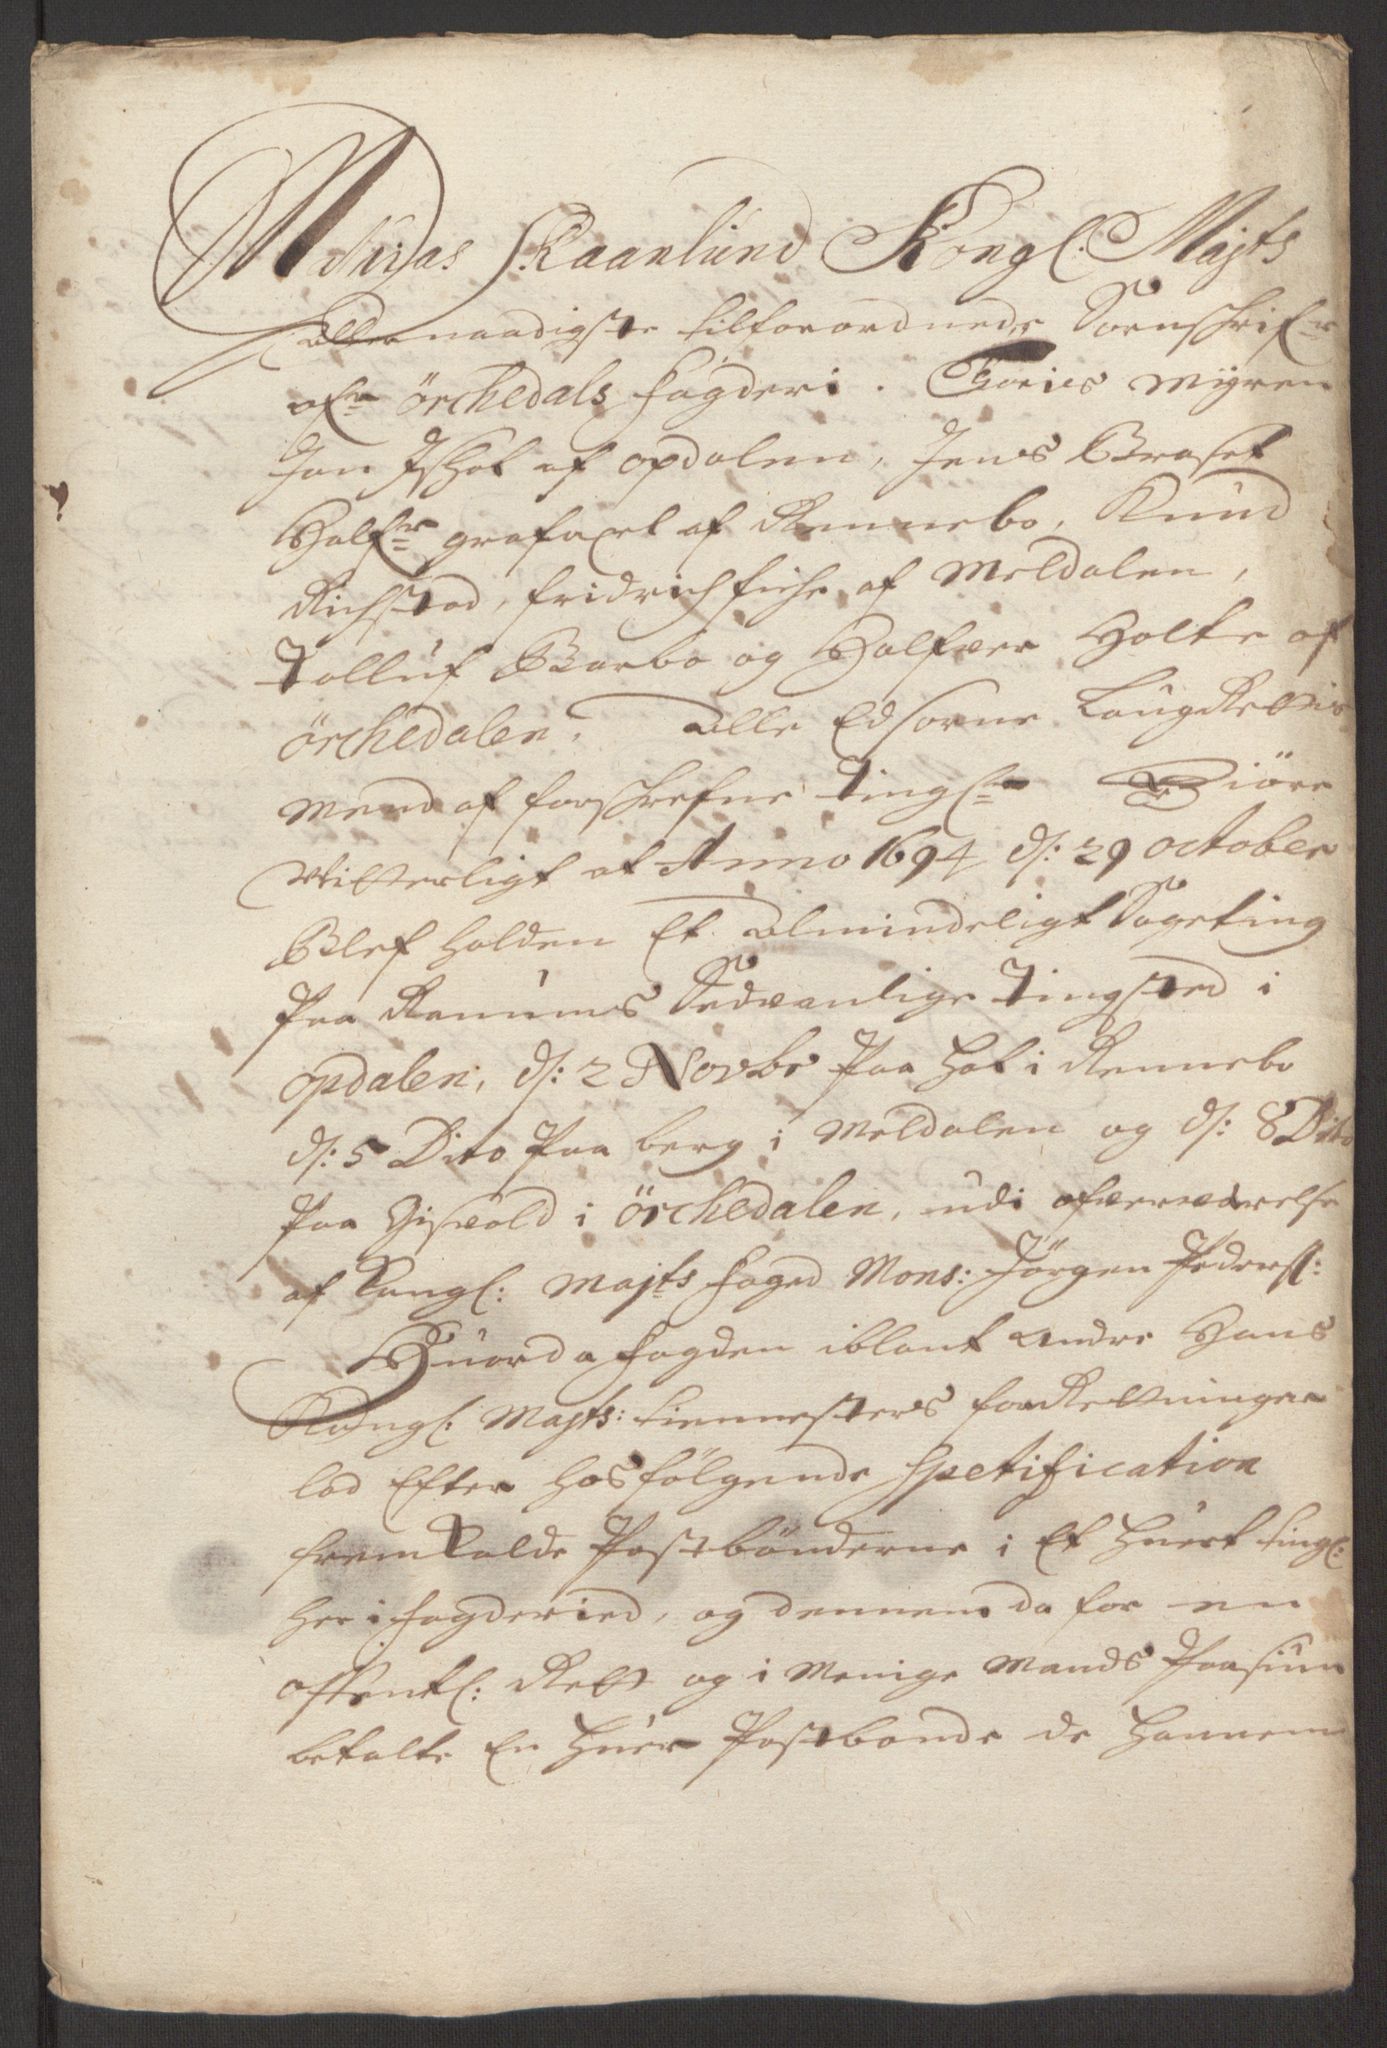 Madtzias Skaanlund Kongl: Maÿts
Allernaadigste tilforordnede Sorenschrifr
ofr Örchedals fogderi. Tories Mÿren
Jon Ishol af opdalen, Jens Braset
Halfr grefaxel af Rennebo, Knud
Richstad, fridrich fiche af Meldalen,
Tolluf Barbo og Halfuer Holte af
Örchedalen. Alle Edsorne Laugrettis
Mend af forschrefne tingl: Giöre
Vitterligt at Anno 1694 d: 29 october
Blef holden Et Almindeligt Sageting
Paa Rennes Sedvanlige Tingsted i
opdalen, d: 2 Novbr Paa Hol i Rennebo
d: 5 Dito Paa berg i Meldalen og d: 8 Dito
Paa Gisvold i Örchedalen, udi ofverværelse
af Kongl: Maÿts foged Mons: Jörgen Peders:
Huor da fogden iblant andre Hans
Kongl: Maÿts: tiennesters forRettninger
lod Efter hosfölgende Spetification
fremkalde Postbönderne i Et huert tingl:
her i fogderied, og dennem da for en
offentl: Rett og i Menige Mands Paasiun
betalte En huer Postbonde de hannem